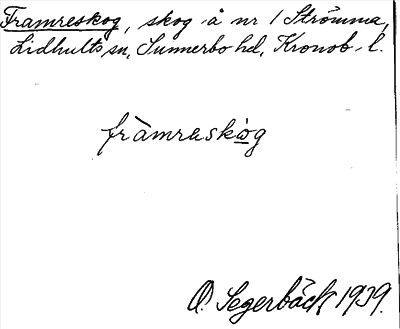 Framreskog, skog å nr 1 Strömma,
Lidhults sn, Sunnerbo hd, Kronob. l.
fràmreskòg
O. Segerbäck 1939.